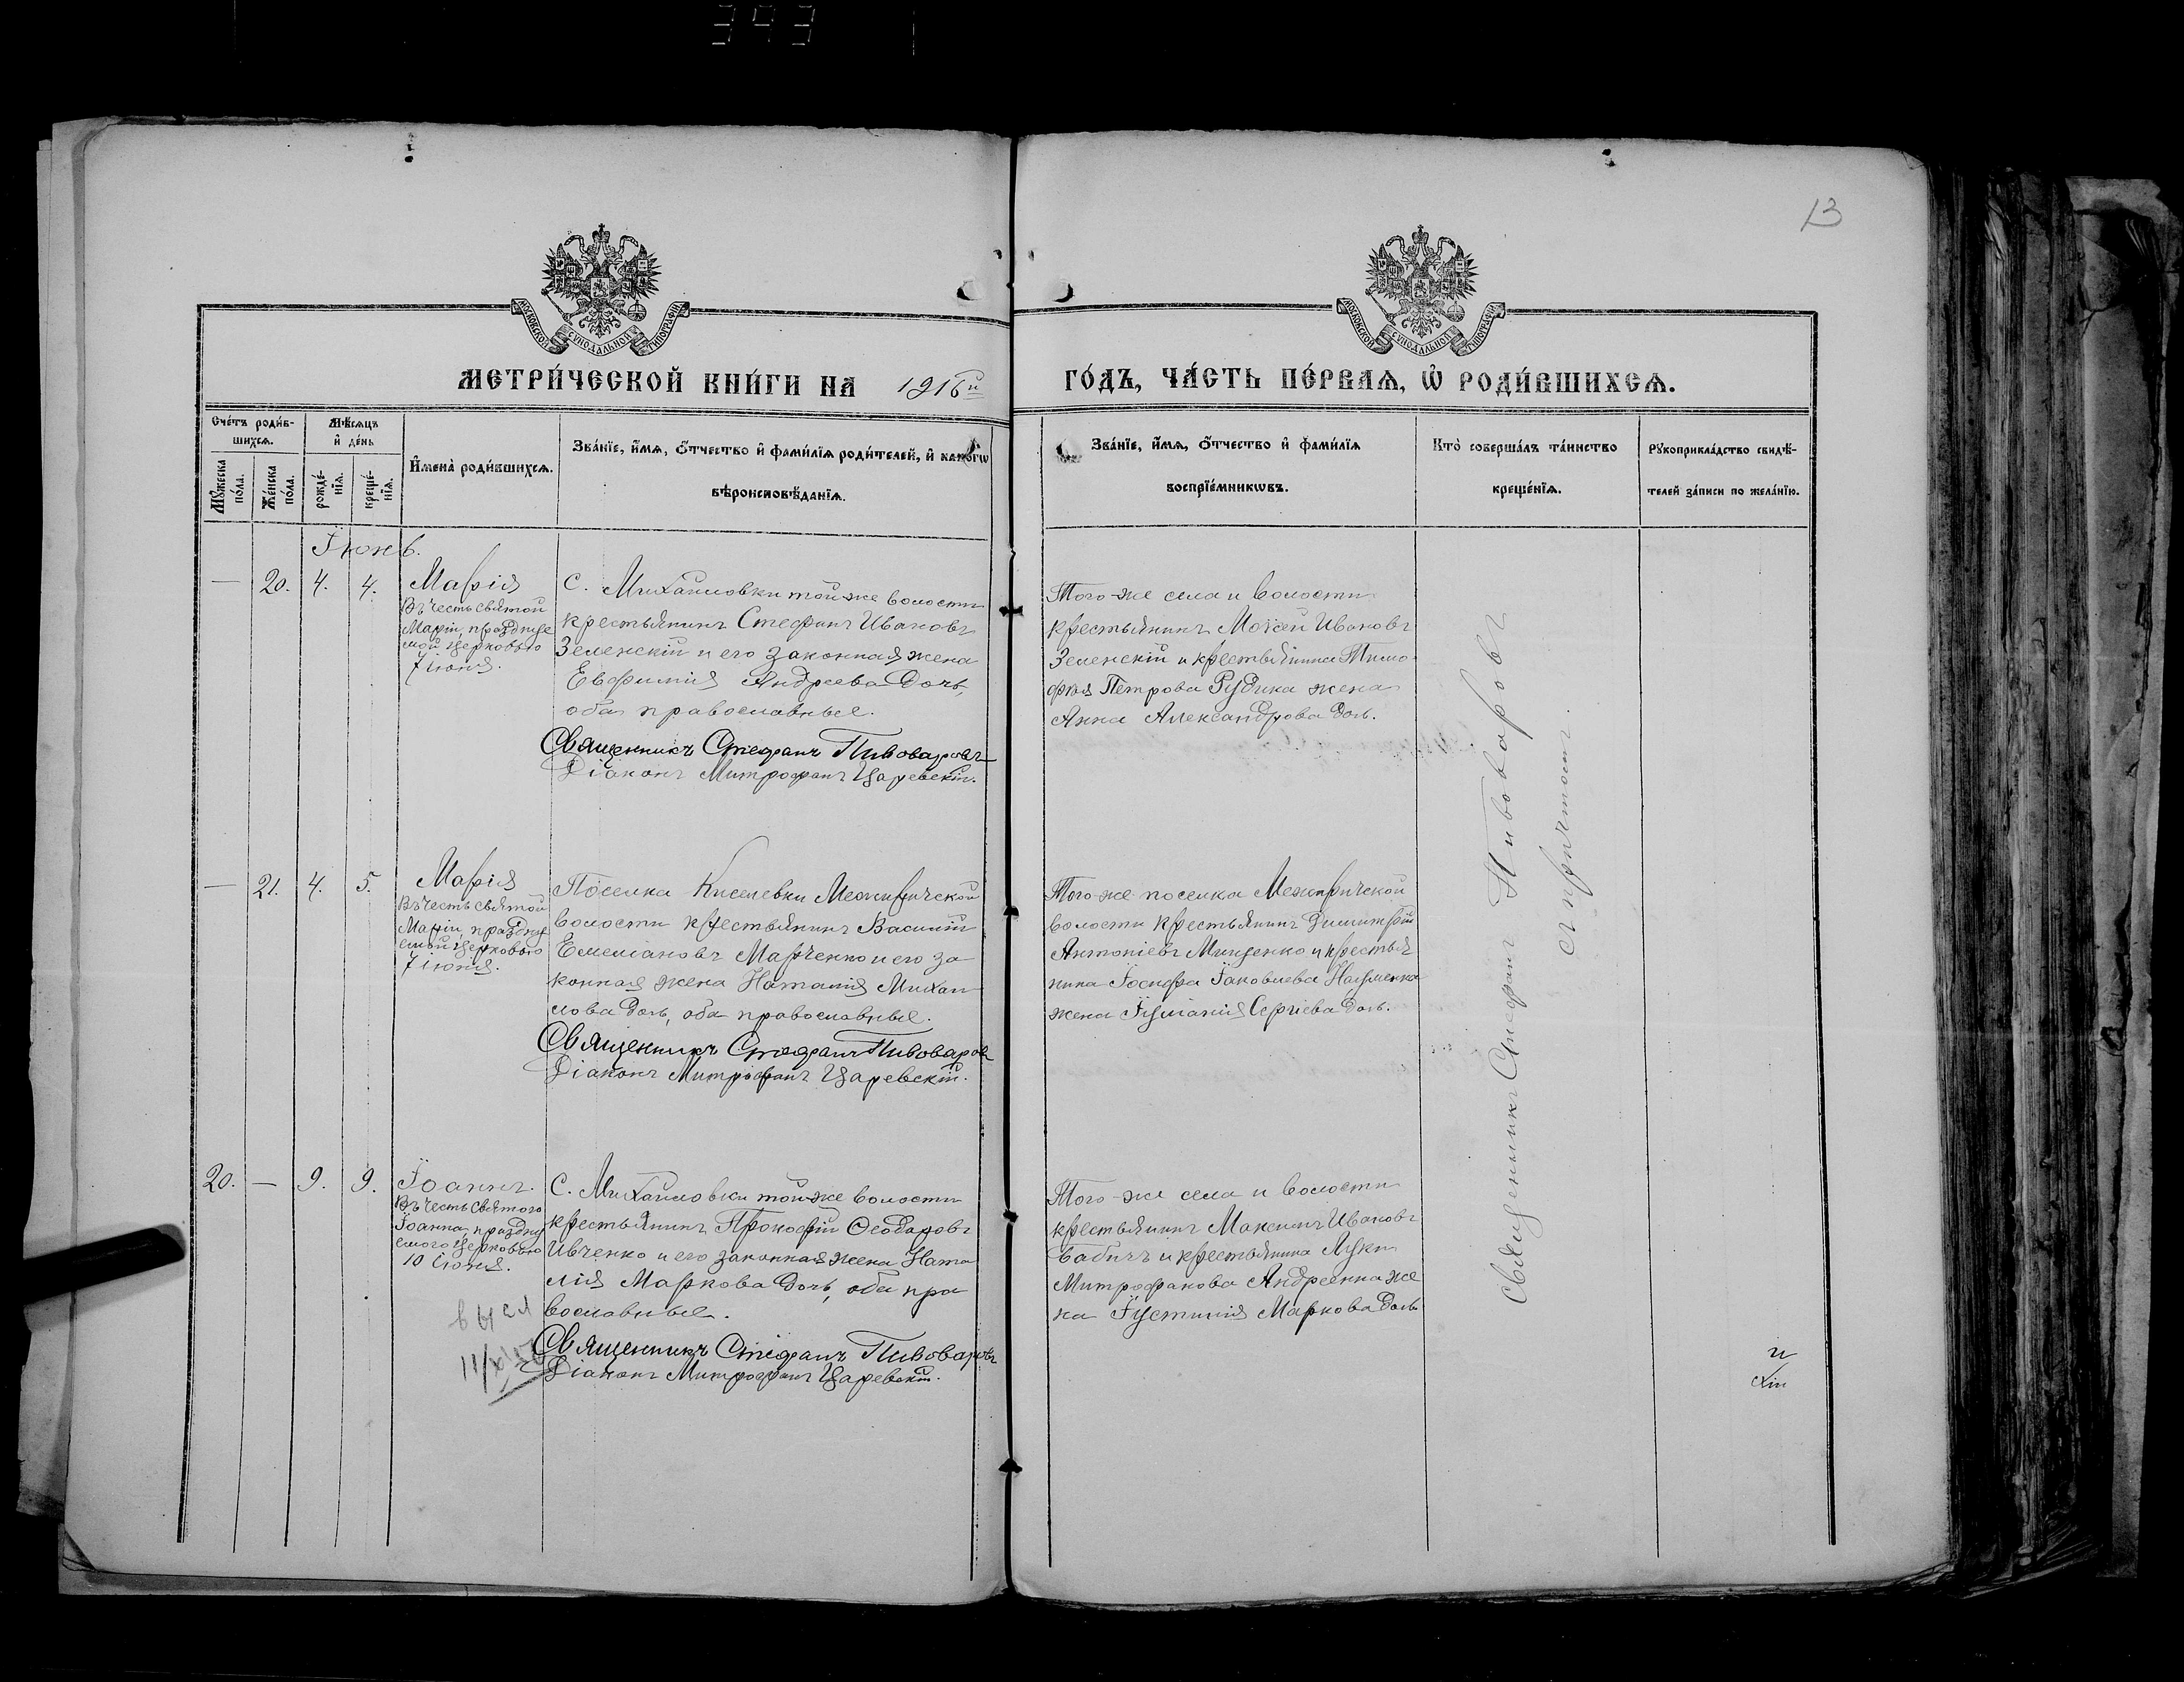 393
13
МОСКОВСКОЙ СѴНОДАЛЬНОЙ ТИПОГРАФІИ
МОСКОВСКОЙ СѴНОДАЛЬНОЙ ТИПОГРАФІИ
МЕТРИ́ЧЕСКОЙ КНИ́ГИ НА 1916й
ГО́ДЪ, ЧА́СТЬ ПЕ́РВАѦ, Ѽ РОДИ́ВШИХСѦ.
Сче́тъ роди́в-
шихсѧ.
Мѣ́сѧцъ
и҆ де́нь
Мꙋ́жеска
по́ла.
Же́нска
по́ла.
рожде́-
нїѧ.
креще́-
нїѧ.
И҆мена̀ роди́вшихсѧ.
Зва́нїе, и҆́мѧ, ѻ҆́тчество и҆ фами́лїѧ роди́телей, и҆ како́гѡ
вѣроисповѣ́данїѧ.
Зва́нїе, и҆́мѧ, ѻ҆́тчество и҆ фами́лїѧ
воспрїе́мникѡвъ.
Кто̀ соверша́лъ та́инство
креще́нїѧ.
Рꙋкоприкла́дство свидѣ́-
телей за́писи по жела́нїю.
Іюнь.
— 20. 4. 4.
Марія
Въ честь святой
Маріи, празднуе
мой церковью
7 іюня.
С. Михайловки той-же волости
крестьянинъ Стефанъ Ивановъ
Зеленскій и его законная жена
Евфимія Андреева дочь,
оба православные.
Священникъ Стефанъ Пивоваровъ
Діаконъ Митрофанъ Царевскій.
Того-же села и волости
крестьянинъ Моѵсей Ивановъ
Зеленскій и крестьянина Тимо-
фея Петрова Рудика жена
Анна Александрова дочь.
— 21. 4. 5.
Марія
Въ честь святой
Маріи, праздну
емой церковью
7 іюня.
Поселка Киселевки Межиричской
волости крестьянинъ Василій
Емеліановъ Марченко и его за
конная жена Наталія Михаи
лова дочь, оба православные.
Священникъ Стефанъ Пивоваровъ
Діаконъ Митрофанъ Царевскій.
Того-же поселка Межиричской
волости крестьянинъ Димитрій
Антоніевъ Мищенко и крестья
нина Іосифа Іаковлева Науменка
жена Іуліанія Сергіева дочь.
20. — 9. 9.
Іоаннъ.
Въ честь святого
Іоанна, праздну
емого церковью
10 іюня.
С. Михайловки той-же волости
крестьянинъ Прокофій Ѳеодоровъ
Ивченко и его законная жена Ната
лія Маркова дочь, оба пра
вославные.
Священникъ Стефанъ Пивоваровъ
Діаконъ Митрофанъ Царевскій.
Того-же села и волости
крестьянинъ Максимъ Ивановъ
Бабичъ и крестьянина Луки
Митрофанова Андреенка же
на Іустинія Маркова дочь
Священникъ Стефанъ Пивоваровъ
съ причтомъ.